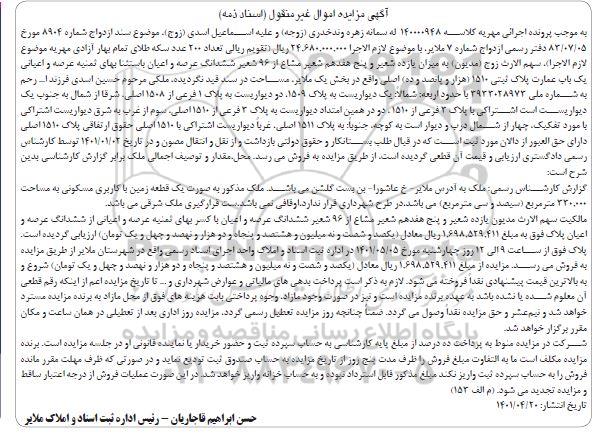 آگهی مزایده اموال غیرمنقول (اسناد ذمه)
به موجب پرونده اجرائی مهریه کلاسه ۱۴۰۰۰۰۹۴۸ له سمانه زهره وندخدری (زوجه) و علیه اسماعیل اسدی (زوج). موضوع سند ازدواج شماره ۸۹۰۴ مورخ
۸۳/۰۷/۰۵ دفتر رسمی ازدواج شماره ۷ ملایر، با موضوع لازم الاجرا ۲۴,۶۸۰,۰۰۰,۰۰۰ ریال (تقویم ریالی تعداد ۲۰۰ عدد سکه طلای تمام بهار آزادی مهریه موضوع
لازم الاجرا)، سهم الارث زوج (مدیون) به میزان یازده شعیر و پنج هفدهم شعیر مشاع از ۹۶ شعیر ششدانگ عرصه و اعیان باستثنا بهای ثمنیه عرصه و اعیانی
یک باب عمارت پلاک ثبتی ۱۵۱۰ (هزار و پانصد و ده) اصلی واقع در بخش یک ملایر، مساحت در سند قید نگردیده، ملکی مرحوم حسین اسدی فرزند ا... رحم
به شماره ملی ۳۹۳۳۰۲۸۹۷۳ با حدود اربعه: شمالا: یک دیواریست به پلاک ۱۵۰۹، دو دیواریست به پلاک ۱ فرعی از ۱۵۰۸ اصلی، شرقا از شمال به جنوب یک
دیواریست است اشتراکی با پلاک ۳ فرعی از ۱۵۱۰، دو در همین امتداد دیواریست به پلاک ۳ فرعی از ۱۵۱۰ اصلی، سوم از غرب به شرق دیواریست اشتراکی
با مورد تفکیک، چهار از شمال درب و دیوار است به کوچه، جنوبا: به پلاک ۱۵۱۱ اصلی، غربا دیواریست اشتراکی با ۱۵۱۰ اصلی حقوق ارتفاقی پلاک ۱۵۱۰ اصلی
دارای حق العبور از دالان مورد ثبت است که در قبال طلب بستانکار و حقوق دولتی بازداشت و از نقل و انتقال مصون و در تاریخ ۱۴۰۱/۰۱/۰۲ توسط کارشناس
رسمی دادگستری ارزیابی و قیمت آن قطعی گردیده است، از طریق مزایده به فروش می رسد. محل،مقدار و توصیف اجمالی ملک برابر گزارش کارشناسی بدین
شرح است:
گزارش کارشناس رسمی: ملک به آدرس ملایر – خ عاشورا- بن بست گلشن می باشد. ملک مذکور به صورت یک قطعه زمین با کاربری مسکونی به مساحت
۳۳۰,۰۰۰ مترمربع (سیصد و سی مترمربع) می باشد.در طرح شهرداری قرار ندارد.اوقافی نمی باشد.بست قرارگیری ملک شرقی می باشد.
مالکیت سهم الارث مدیون یازده شعیر و پنج هفدهم شعیر مشاع از ۹۶ شعیر ششدانگ عرصه و اعیان با کسر بهای ثمنیه عرصه و اعیانی از ششدانگ عرصه و
اعیان پلاک فوق به مبلغ ۱,۶۹۸,۵۲۹,۴۱۱ ریال معادل (یکصد و شصت و نه میلیون و هشتصد و پنجاه و دو هزار و نهصد و چهل و یک تومان) ارزیابی گردیده است.
پلاک فوق از ساعت ۹ الی ۱۲ روز چهارشنبه مورخ ۱۴۰۱/۰۵/۰۵ در اداره ثبت اسناد و املاک واحد اجرای اسناد رسمی واقع در شهرستان ملایر از طریق مزایده
به فروش می رسد. مزایده از مبلغ ۱,۶۹۸,۵۲۹,۴۱۱ ریال معادل (یکصد و شصت و نه میلیون و هشتصد و پنجاه و دو هزار و نهصد و چهل و یک تومان) شروع و
به بالاترین قیمت پیشنهادی نقدا فروخته می شود. لازم به ذکر است پرداخت بدهی های مالیاتی و عوارض شهرداری و ... تا تاریخ مزایده اعم از اینکه رقم قطعی
آن معلوم شده یا نشده باشد به عهده برنده مزایده است و نیز در صورت وجود مازاد، وجوه پرداختی بابت هزینه های فوق از محل مازاد به برنده مزایده مسترد
خواهد شد و نیم عشر و حق مزایده نقدا وصول می گردد. ضمنا چنانچه روز مزایده تعطیل رسمی گردد، مزایده روز اداری بعد از تعطیلی در همان ساعت و مکان
مقرر برگزار خواهد شد.
شرکت در مزایده منوط به پرداخت ده درصد از مبلغ پایه کارشناسی به حساب سپرده ثبت و حضور خریدار یا نماینده قانونی او در جلسه مزایده است. برنده
مزایده مکلف است ما به التفاوت مبلغ فروش را ظرف مدت پنج روز از تاریخ مزایده به حساب صندوق ثبت تودیع نماید و در صورتی که ظرف مهلت مقرر مانده
فروش را به حساب سپرده ثبت واریز نکند مبلغ مذکور قابل استرداد نبوده و به حساب خزانه واریز خواهد شد. در این صورت عملیات فروش از درجه اعتبار ساقط
و مزایده تجدید می شود. (م الف ۱۵۳)
تاریخ انتشار: ۱۴۰۱/۰۴/۲۰
حسن ابراهیم قاجاریان – رئیس اداره ثبت اسناد و املاک ملایر